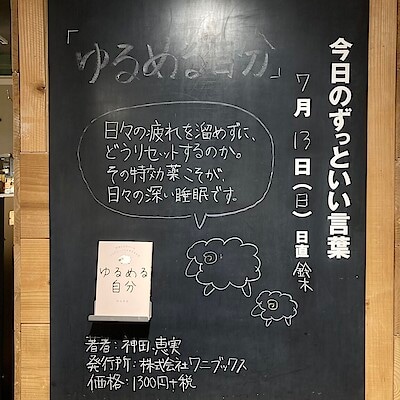 今日のずっといい言葉
7月13日(日) 日直 鈴木
「ゆるめる自分」
日々の疲れを溜めずに、
どうリセットするのか。
その特効薬こそが、
日々の深い睡眠です。
ゆるめる
自分
著者:神田恵実
発行所:株式会社ワニブックス
価格:1300円+税